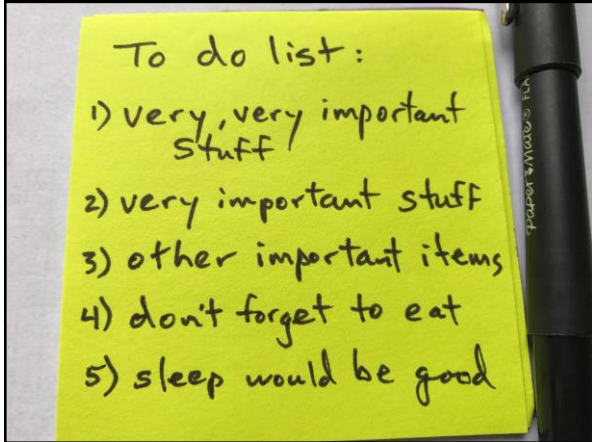 To do list:
1) very, very important
stuff
2) very important stuff
3) other important items
4) don't forget to eat
5) sleep would be good
Paper Mate® FLA